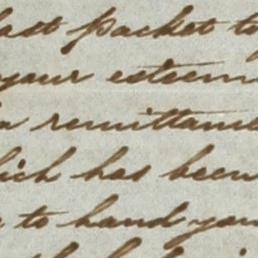 last packet to
your esteem
remittance
which has been
to hand you